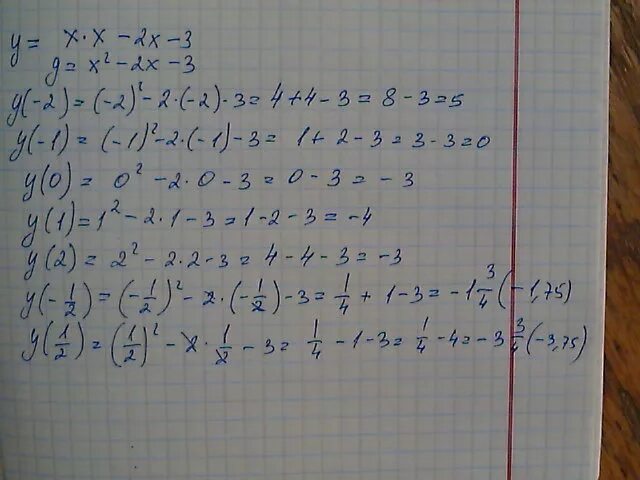 y = x·x − 2x − 3
y = x² − 2x − 3
y(−2) = (−2)² − 2·(−2) − 3 = 4 + 4 − 3 = 8 − 3 = 5
y(−1) = (−1)² − 2·(−1) − 3 = 1 + 2 − 3 = 3 − 3 = 0
y(0) = 0² − 2·0 − 3 = 0 − 3 = −3
y(1) = 1² − 2·1 − 3 = 1 − 2 − 3 = −4
y(2) = 2² − 2·2 − 3 = 4 − 4 − 3 = −3
y(−1/2) = (−1/2)² − 2·(−1/2) − 3 = 1/4 + 1 − 3 = −1 3/4 (−1,75)
y(1/2) = (1/2)² − 2·1/2 − 3 = 1/4 − 1 − 3 = 1/4 − 4 = −3 3/4 (−3,75)